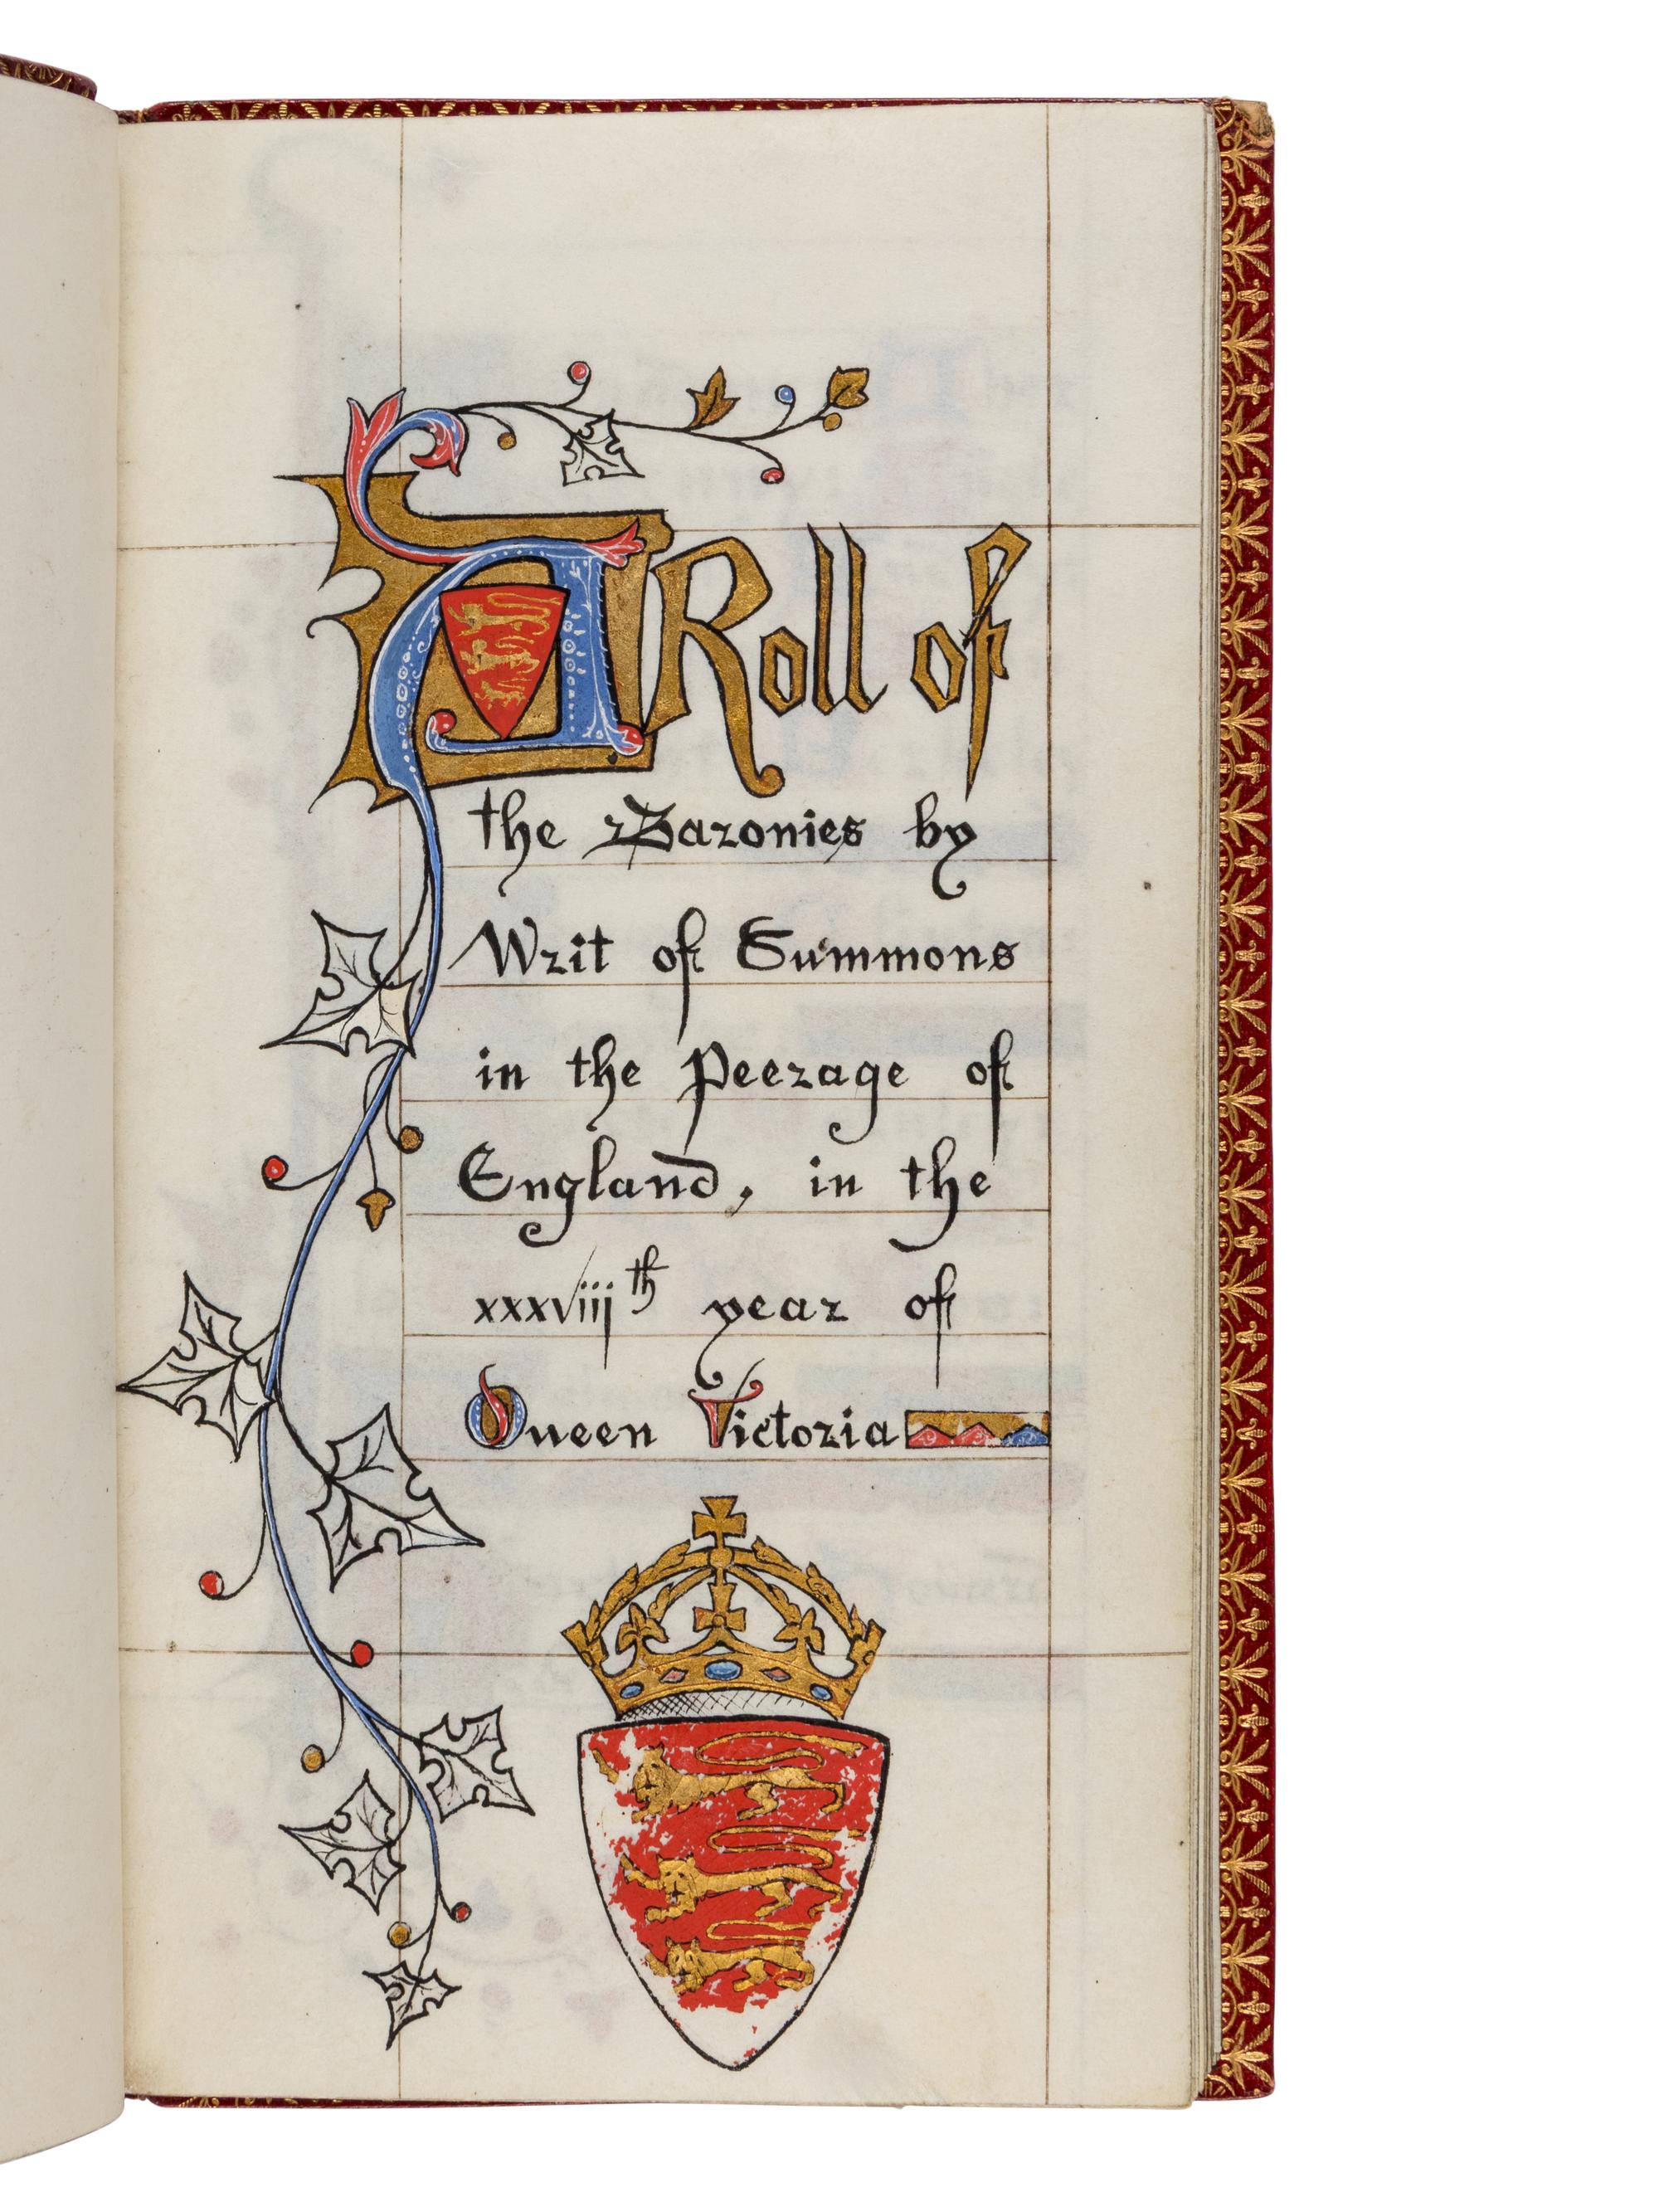 A Roll of
the Baronies by
Writ of Summons
in the Peerage of
England, in the
xxxviij th year of
Queen Victoria